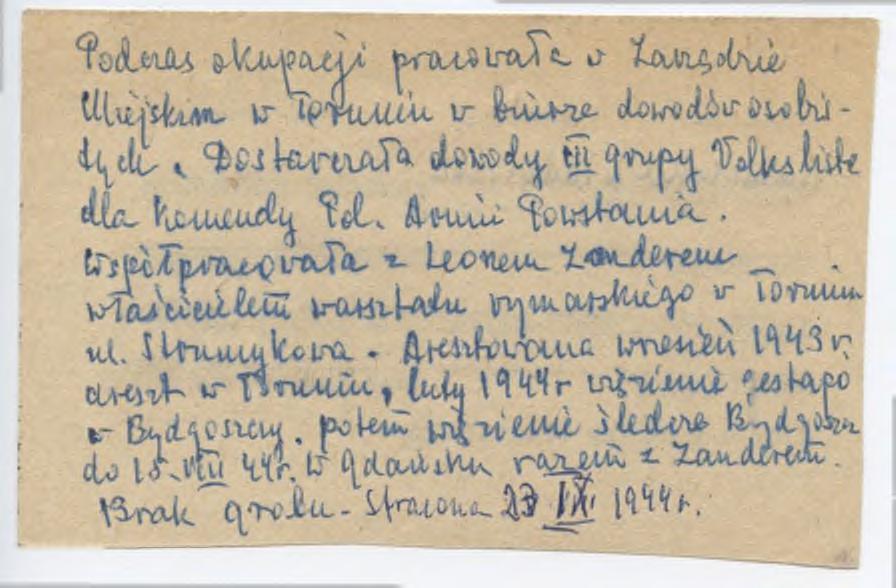 Podczas okupacji pracowała w Zarządzie
Miejskim w Toruniu w biurze dowodów osobis-
tych. Dostarczała dowody III grupy Volksliste
dla Komendy Pd. Armii Powstania.
Współpracowała z Leonem Zanderem
właścicielem warsztatu rymarskiego w Toruniu
ul. Strumykowa. Aresztowana wrzesień 1943 r.
areszt w Toruniu, luty 1944 r więzienie gestapo
w Bydgoszczy. potem więzienie śledcze Bydgoszcz
do 15. VIII 44r. w Gdańsku razem z Zanderem.
Brak grobu - Stracona 23 IX 1944 r.